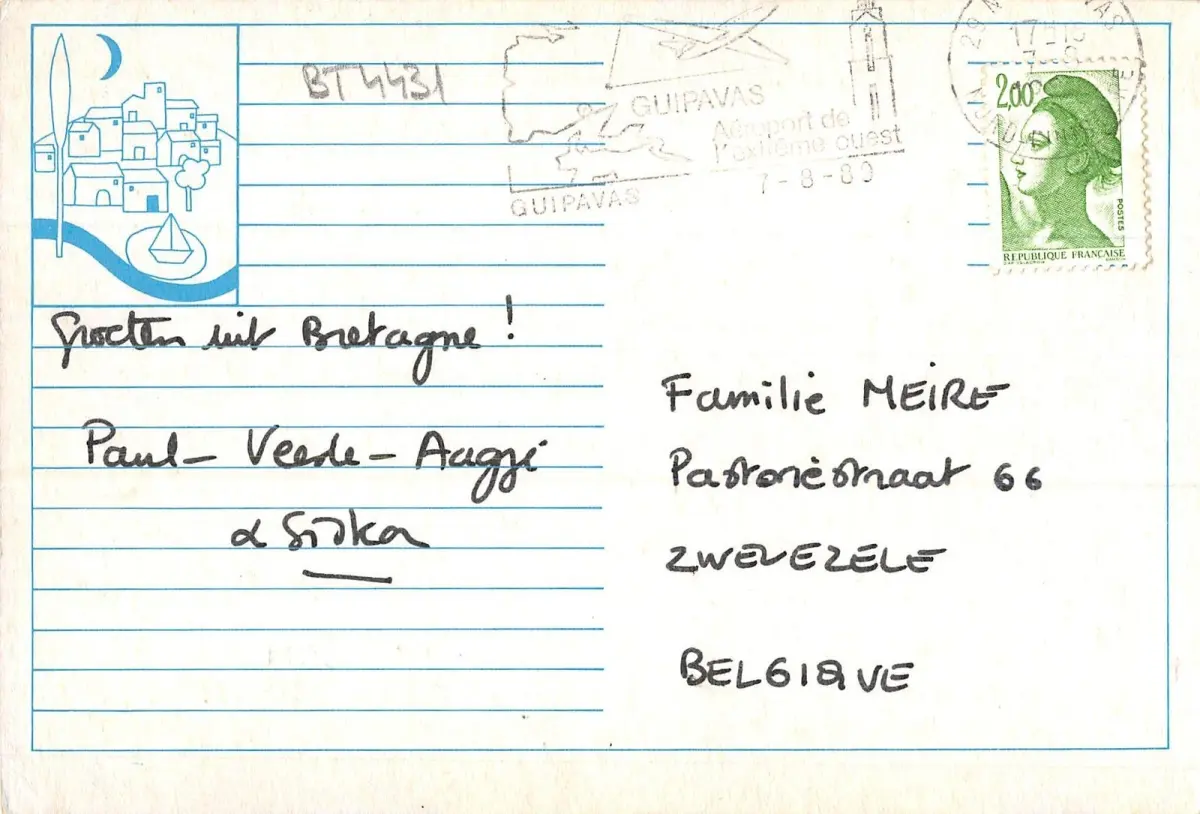 BT4431
GUIPAVAS
Aéroport de
l'extrême ouest
GUIPAVAS
7-8-89
17H15
2,00
POSTES
REPUBLIQUE FRANÇAISE
Groeten uit Bretagne!
Paul - Veerle - Aagje
& Sidka
Familie MEIRE
Pastoriestraat 66
ZWEVEZELE
BELGIQUE